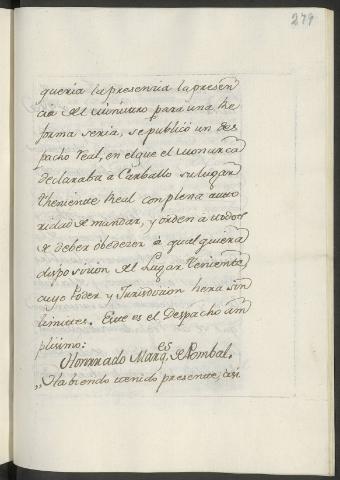 279
queria la presenzia la presen
cia del Ministro para una Re
forma seria, se publicó un des
pacho real, en el que el Monarca
declaraba á Carballo su lugar
Theniente Real con plena auto
ridad de mandar, y orden á todos
de deber obedezer á qualquiera
disposizion del Lugar Teniente,
cuyo Poder y Jurisdizion hera sin
limites. Este es el Despacho am
plisimo:
Honrrado Marq.es de Pombal.
„Habiendo tenido presente, asi